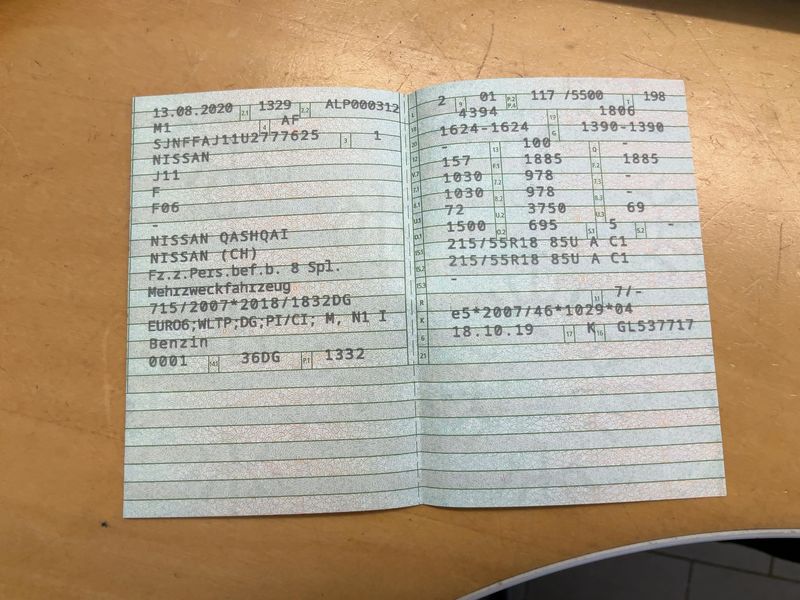 13.08.2020 2.1 1329 2.2 ALP000312
M1 4 AF
SJNFFAJ11U2777625 3 1
NISSAN
J11
F
F06
-
NISSAN QASHQAI
NISSAN (CH)
Fz.z.Pers.bef.b. 8 Spl.
Mehrzweckfahrzeug
715/2007*2018/1832DG
EURO6;WLTP;DG;PI/CI; M, N1 I
Benzin
0001 36DG P.1 1332
L 2 9 01 P.2 P.4 117 /5500 T 198
18 4394 19 1806
20 1624-1624 G 1390-1390
12 - 13 100 Q -
V.7 157 F.1 1885 F.2 1885
7.1 1030 7.2 978 7.3 -
8.1 1030 8.2 978 8.3 -
U.1 72 U.2 3750 U.3 69
O.1 1500 O.2 695 S.1 5 S.2 -
15.1 215/55R18 85U A C1
15.2 215/55R18 85U A C1
15.3 -
R 11 7/-
K e5*2007/46*1029*04
6 18.10.19 17 K 16 GL537717
21